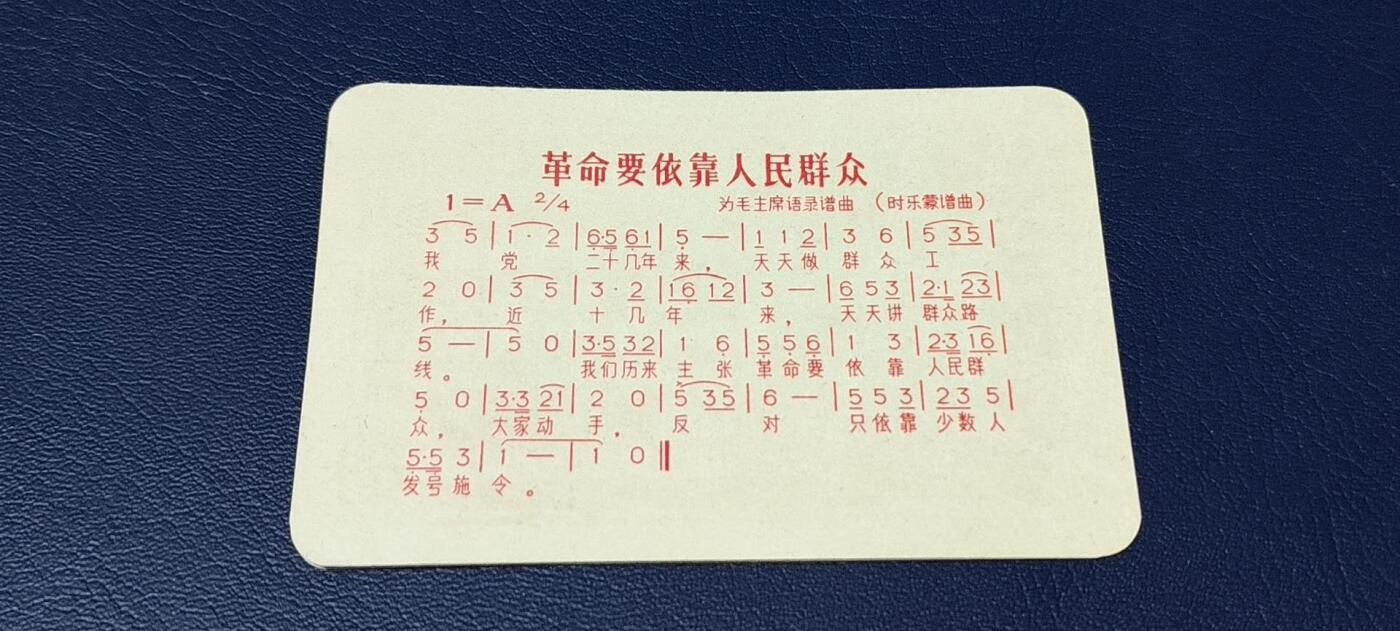 革命要依靠人民群众
1=A 2/4 为毛主席语录谱曲 (时乐蒙谱曲)
3 5 | 1 · 2 | 6·5 61 | 5 — | 1 1 2 | 3 6 | 5 35 |
我 党 二十几年 来， 天天做 群 众 工
2 0 | 3 5 | 3 · 2 | 16 12 | 3 — | 6 5 3 | 2·1 23 |
作， 近 十 几 年 来， 天天讲 群众路
5 — | 5 0 | 3·5 32 | 1 6 | 5 5 6 | 1 3 | 2·3 16 |
线。 我们历来 主 张 革命要 依 靠 人民群
5 0 | 3·3 21 | 2 0 | 5 35 | 6 — | 5 5 3 | 23 5 |
众， 大家动 手， 反 对 只依靠 少数人
5·5 3 | 1 — | 1 0 ‖
发号施 令。